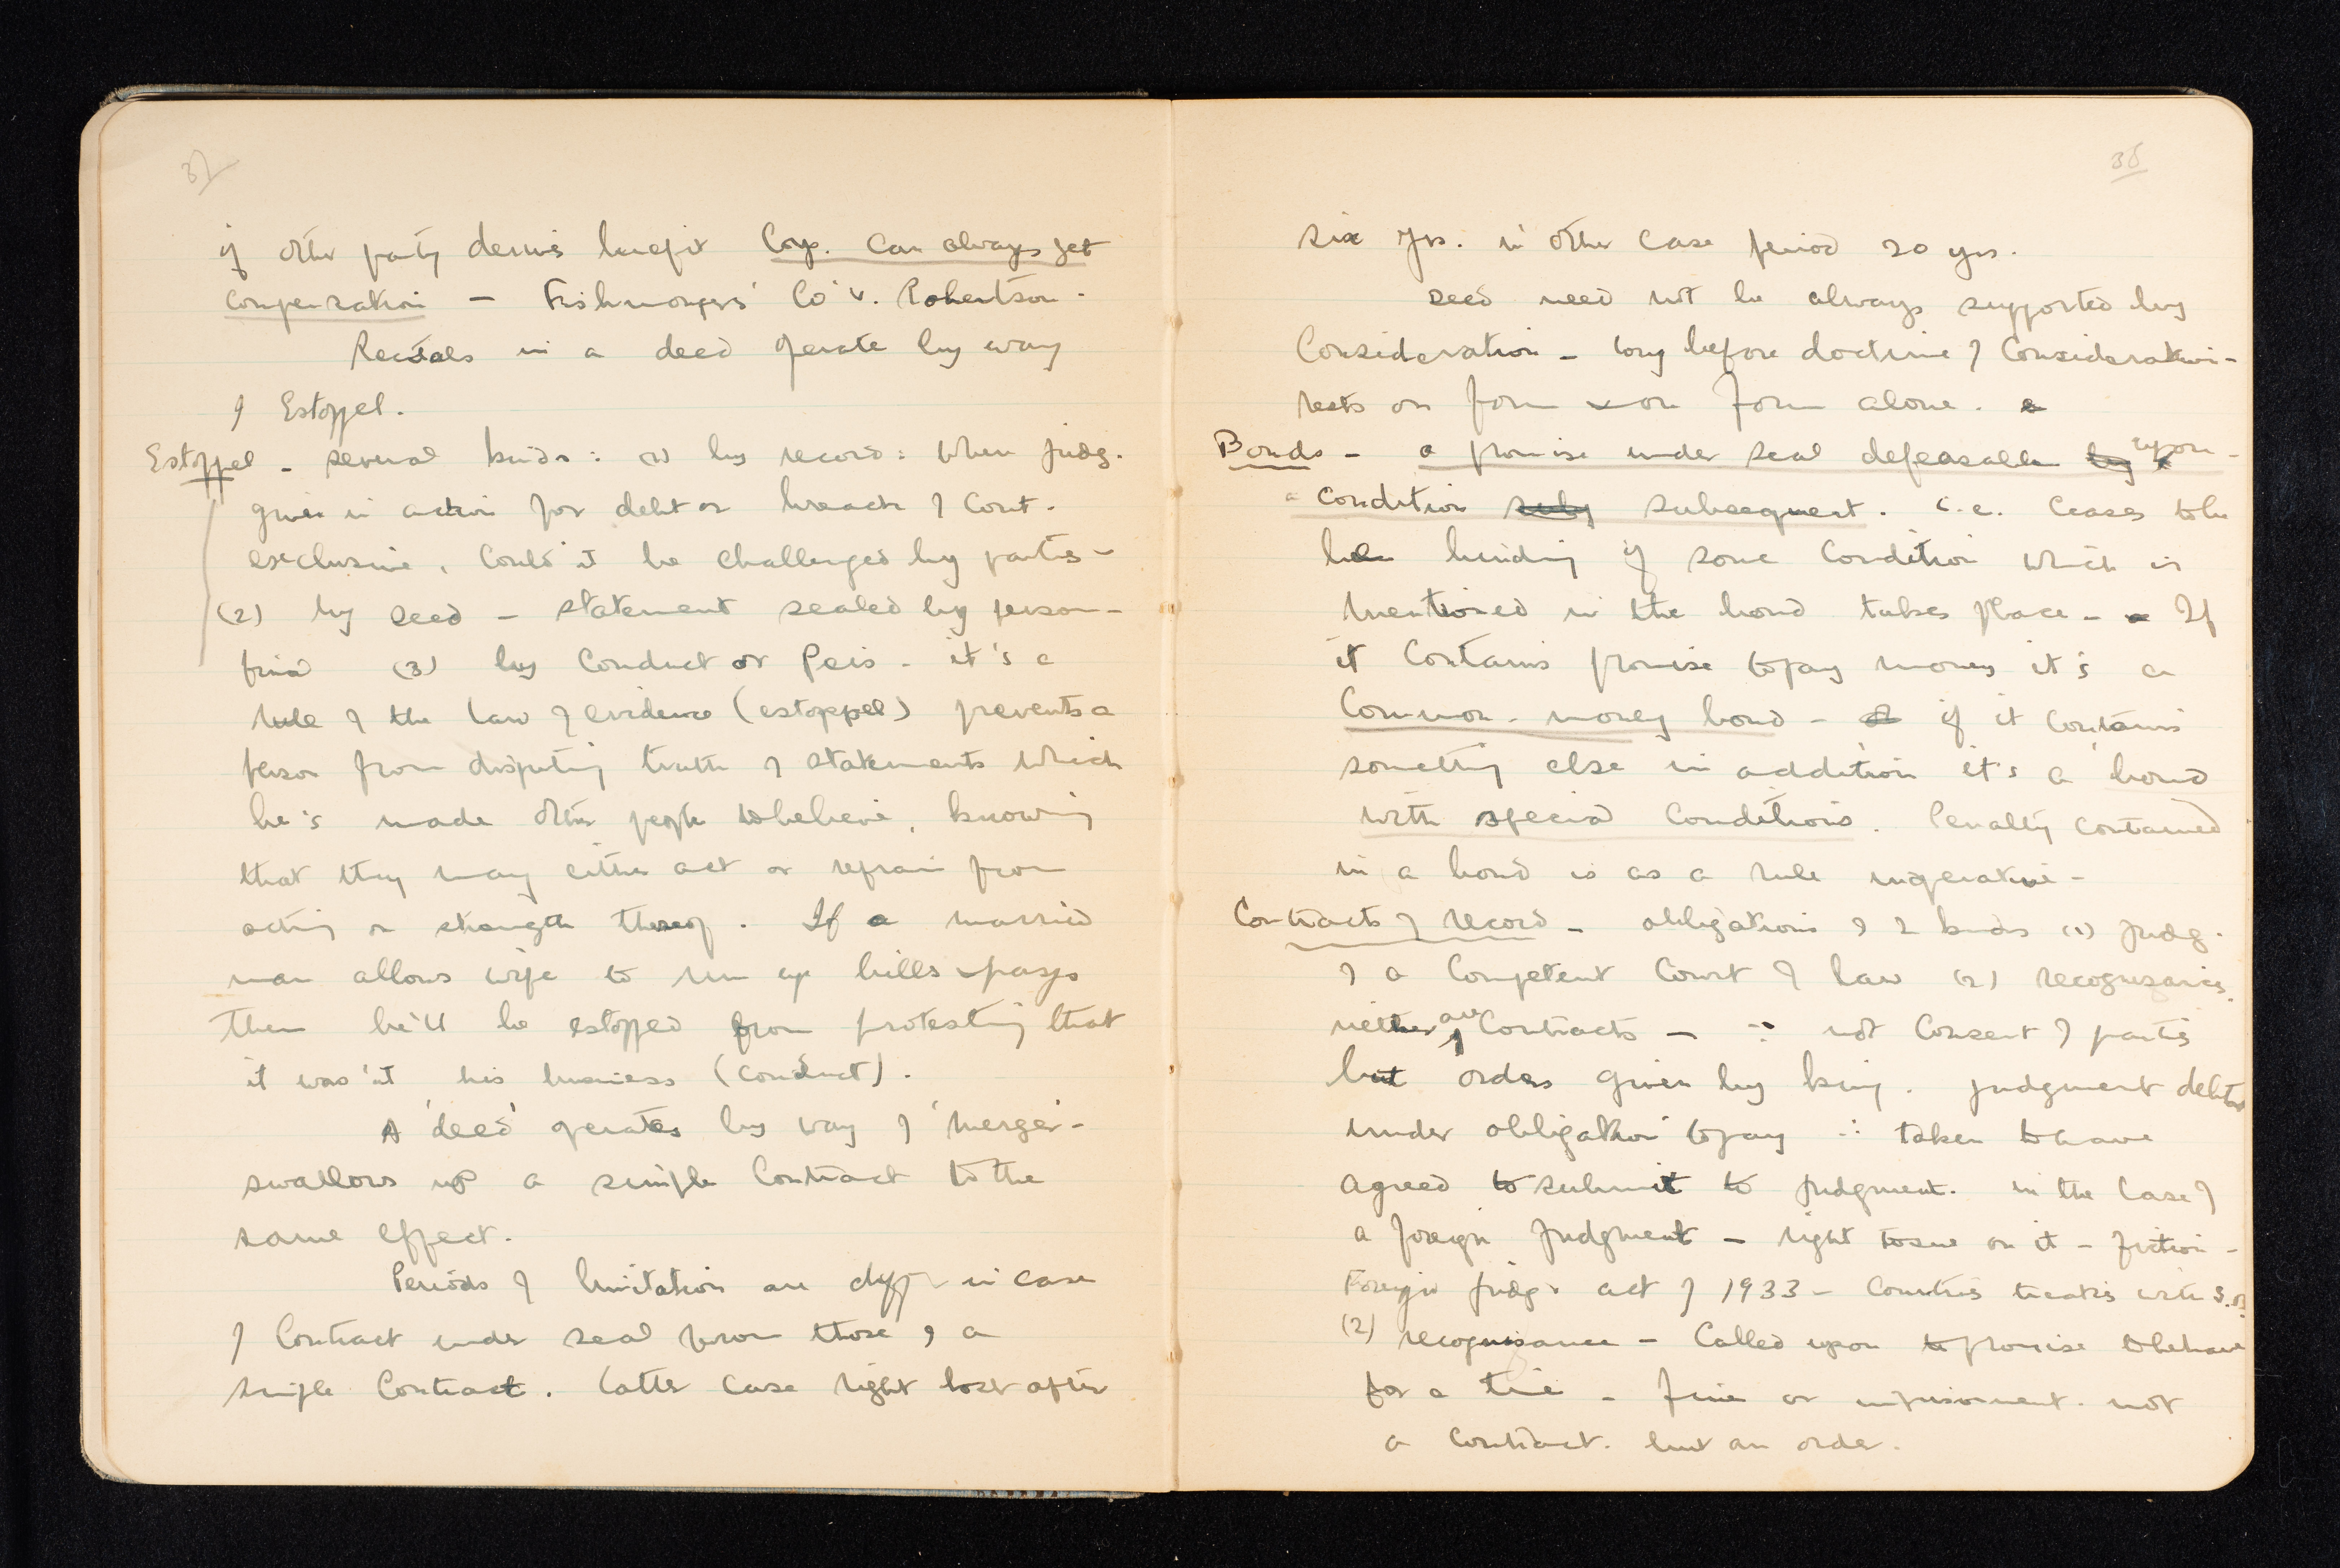 37
if other party derives benefit Corp. can always get
compensation – Fishmongers' Co v. Robertson.
Recitals in a deed operate by way
of Estoppel.
Estoppel – several kinds: (1) by record: when judg.
given in action for debt or breach of cont.
exclusive, could'nt be challenged by parties –
(2) by deed – statement sealed by person –
(3) by conduct or Pais – it's a
rule of the law of evidence (estoppel) prevents a
person from disputing truth of statements which
he's made other people to believe, knowing
that they may either act or refrain from
acting on strength thereof. If a married
man allows wife to run up bills & pays
them he'll be estopped from protesting that
it was'nt his business (conduct).
A 'deed' operates by way of 'merger' –
swallows up a simple contract to the
same effect.
Periods of limitation are diff. in case
of contract under seal from those of a
simple contract. Latter case right lost after
38
six yrs. in other case period 20 yrs.
Deed need not be always supported by
Consideration – long before doctrine of Consideration –
rests on form & on form alone.
Bonds – a promise under seal defeasable by upon
a condition subsequent. i.e. ceases to be
binding if some condition which is
mentioned in the bond takes place – If
it contains promise to pay money it's a
common – money bond – if it contains
something else in addition it's a bond
with special conditions. Penalty contained
in a bond is as a rule inoperative –
Contracts of record – obligations of 2 kinds (1) judg.
of a competent court of law (2) recognizances.
neither are contracts – ∵ not consent of parties
but orders given by king. judgment debtor
under obligation to pay ∵ taken to have
agreed to submit to judgment. in the case of
a foreign judgment – right to sue on it – fiction –
Foreign judg. act of 1933 – countries treaties with
(2) recognisance – called upon to promise to behave
for a time – fine or imprisonment. not
a contract. but an order.